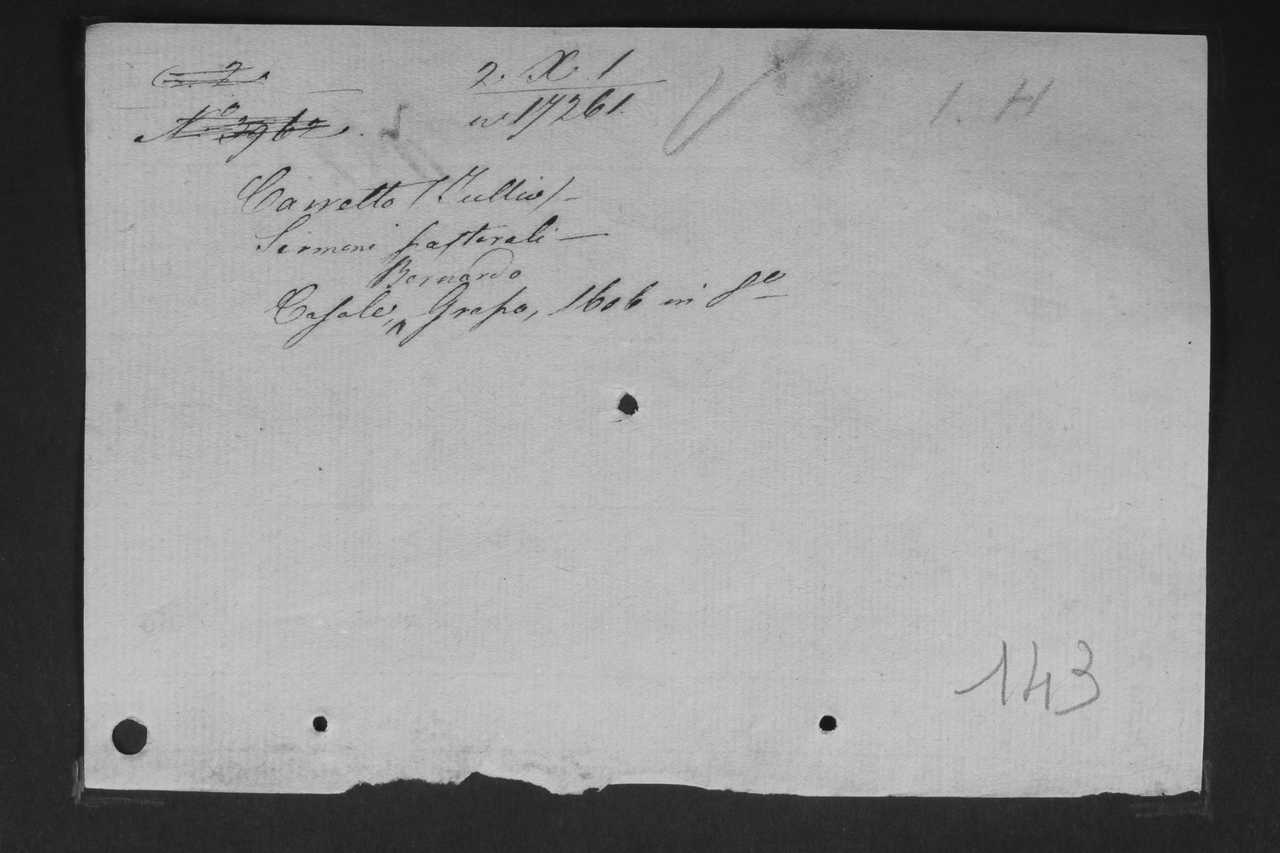 2. X. 1
n 17261.
1. H
Carretto (Tullio) –
Sermoni pastorali —
Bernardo
Casale, Grasso, 1606 in 8º
143